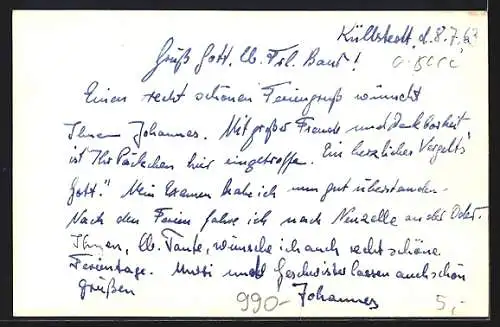 Küllstedt, d. 8.7.63
Grüß Gott, lb. Frl. Baur!
Einen recht schönen Feriengruß wünscht
Ihnen Johannes. Mit großer Freude und Dankbarkeit
ist Ihr Päckchen hier eingetroffen. Ein herzliches Vergelts
Gott." Mein Examen habe ich nun gut überstanden.
Nach den Ferien fahre ich nach Neuzelle an der Oder.
Ihnen, lb. Tante, wünsche ich auch recht schöne
Ferientage. Mutti und Geschwister lassen auch schön
grüßen
Johannes
990- 5,-